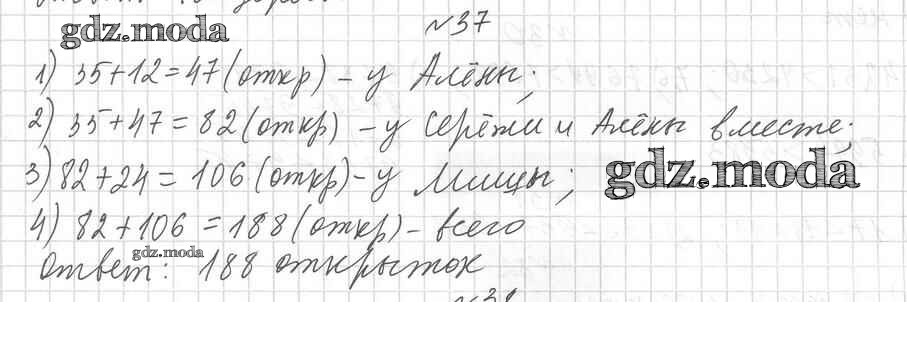 №37
gdz.moda
1) 35+12=47(откр) – у Алёны;
2) 35+47=82(откр) – у Серёжи и Алёны вместе;
3) 82+24=106(откр) – у Миши;
gdz.moda
4) 82+106=188(откр) – всего
gdz.moda
ответ: 188 открыток